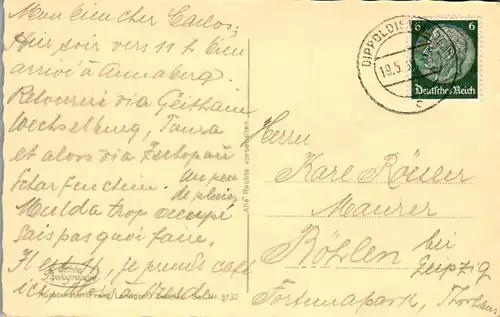 Mon bien cher Carlos;
Hier soir vers 11 h bien
arrivé à Annaberg.
Retourné via Geithain
Wechselburg, Taura
et alors via Zschopau
Scharfenstein. Un peu
de pluie,
Mulda trop occupé
Sais pas quoi faire.
Il est, je prends café
ici
Echte Photographie
Alle Rechte vorbehalten
Nr. 9/32
DIPPOLDIS
19.5.3
c
6 6
Deutsches Reich
Herrn
Karl Rösler
Maurer
Böhlen bei
Leipzig
Fortunapark,